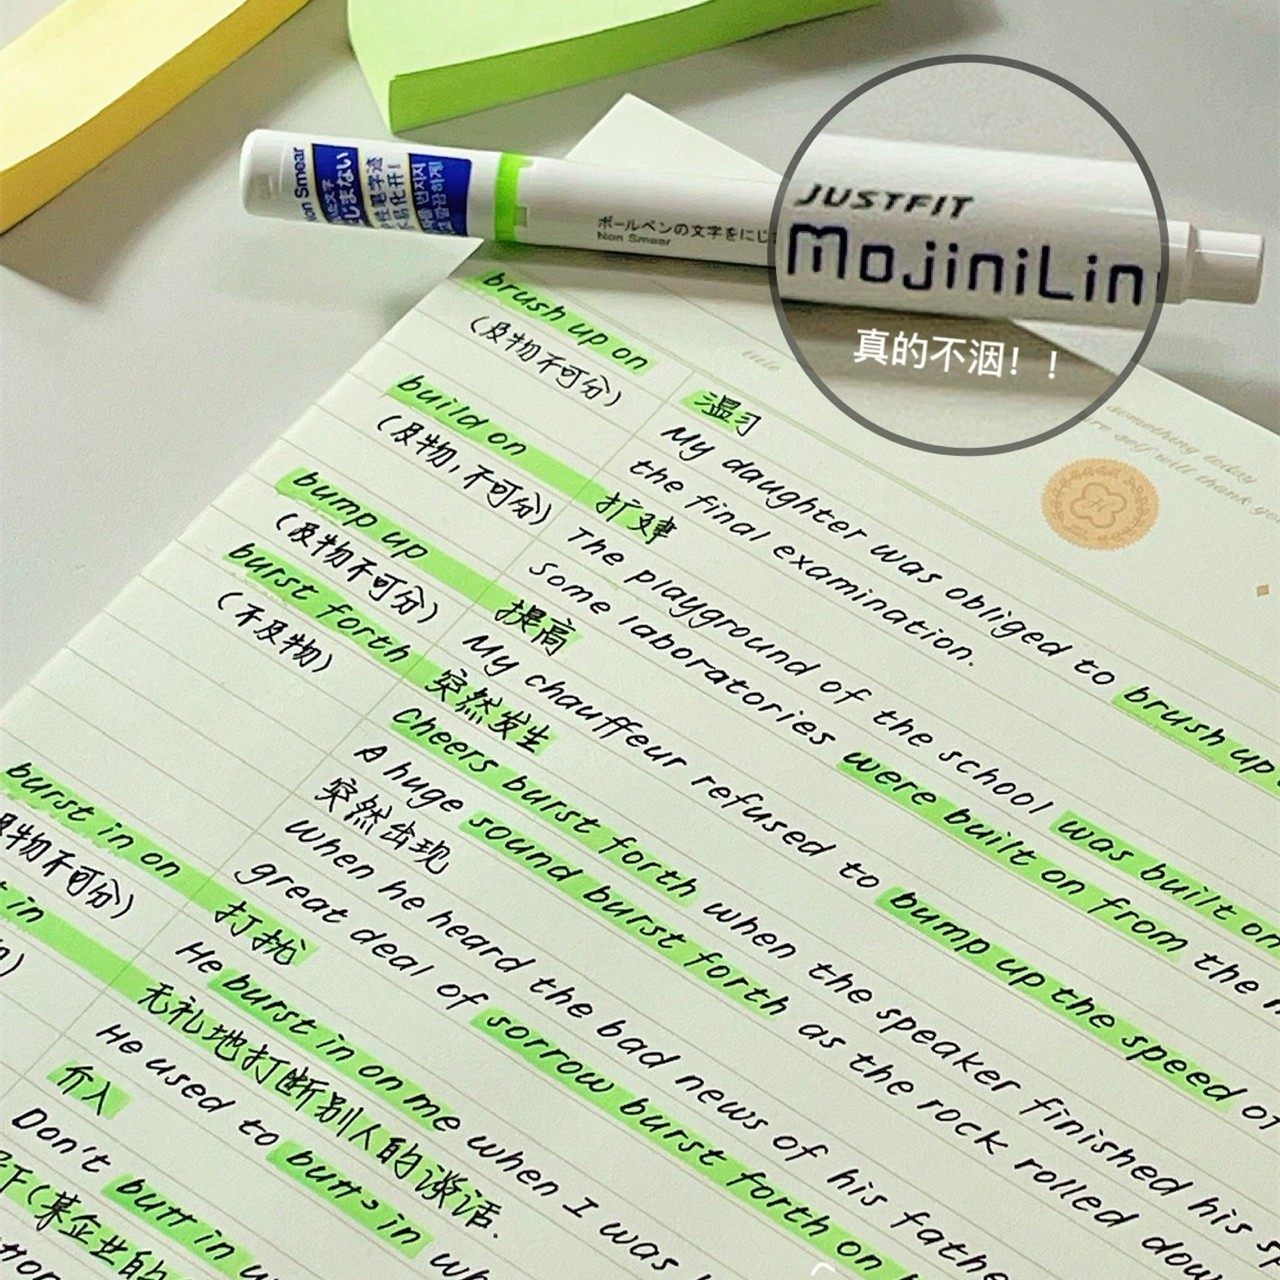 Non Smear
にじまない
ボールペンの文字をにじ
Non Smear
JUSTFIT
MojiniLin
真的不洇！！
title
something today
self will thank you
brush up on
(及物不可分)
温习
My daughter was obliged to brush up
the final examination.
build on
(及物，不可分)
扩建
The playground of the school was built on
Some laboratories were built on from the
bump up
(及物不可分)
提高
My chauffeur refused to bump up the speed of
burst forth
(不及物)
突然发生
Cheers burst forth when the speaker finished his
A huge sound burst forth as the rock rolled
突然出现
When he heard the bad news of his
great deal of sorrow burst forth on
burst in on
及物不可分)
打扰
He burst in on me when I was
in
无礼地打断别人的谈话.
He used to butts in
介入
Don't butt in
(某企业的